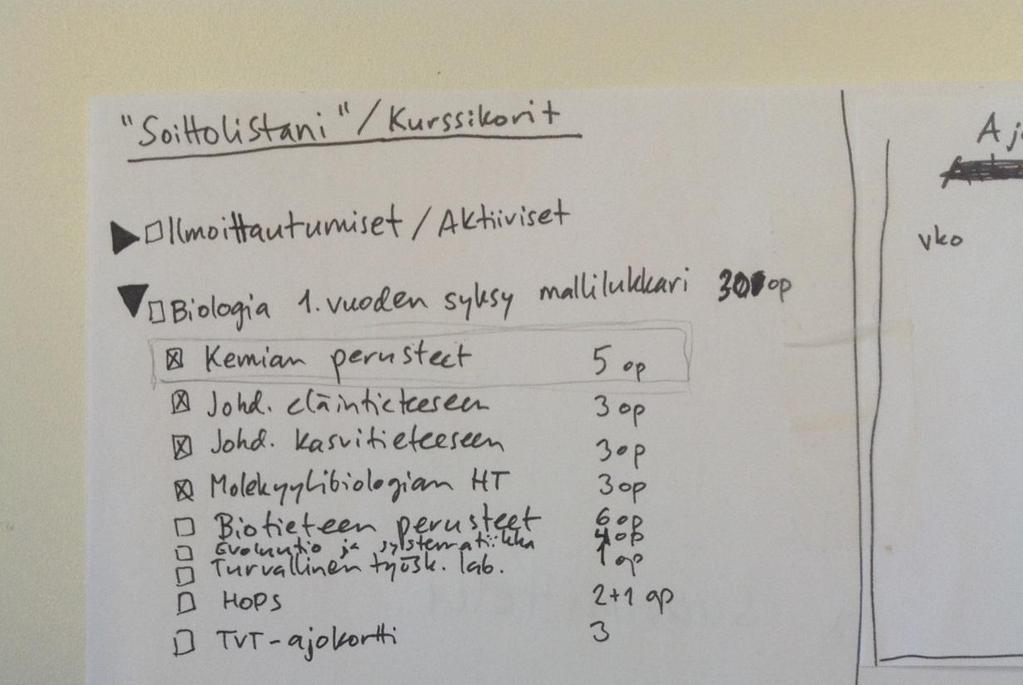 "Soittolistani" / Kurssikorit
Ilmoittautumiset / Aktiiviset
Biologia 1. vuoden syksy mallilukkari 30 op
Kemian perusteet 5 op
Johd. eläintieteeseen 3 op
Johd. kasvitieteeseen 3 op
Molekyylibiologian HT 3 op
Biotieteen perusteet 6 op
Evoluutio ja systematiikka 4 op
Turvallinen työsk. lab. 1 op
HOPS 2+1 op
TVT-ajokortti 3
Aj
vko